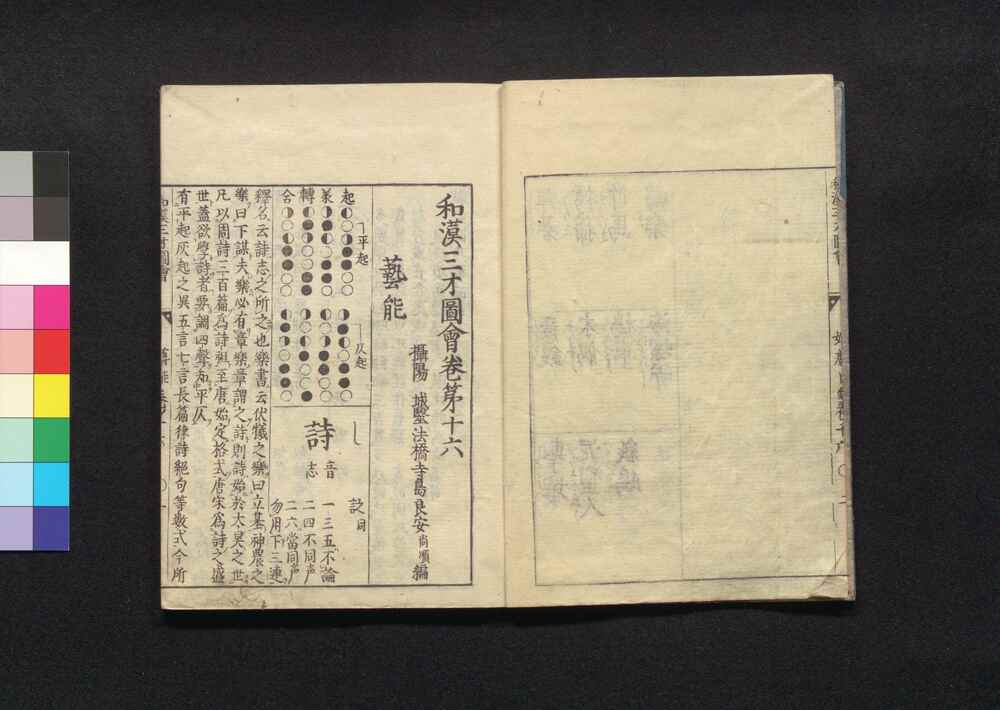 和漢三才圖會卷第十六
攝陽 城醫法橋寺島良安尚順編
藝能
平起
仄起
起
承
轉
合
詩
音志
訣曰
一三五不論
二四不同声
二六當同声
勿用下三連
釋名云詩志之所之也樂書云伏犧之樂曰立基神農之
樂曰下謀夫樂必有章樂章謂之詩則詩始於太昊之世
凡以周詩三百篇爲詩祖至唐始定格式唐宋爲詩之盛
世蓋欲學詩者要調四聲知平仄
有平起仄起之異五言七言長篇律詩絕句等數式今所
和漢三才圖會